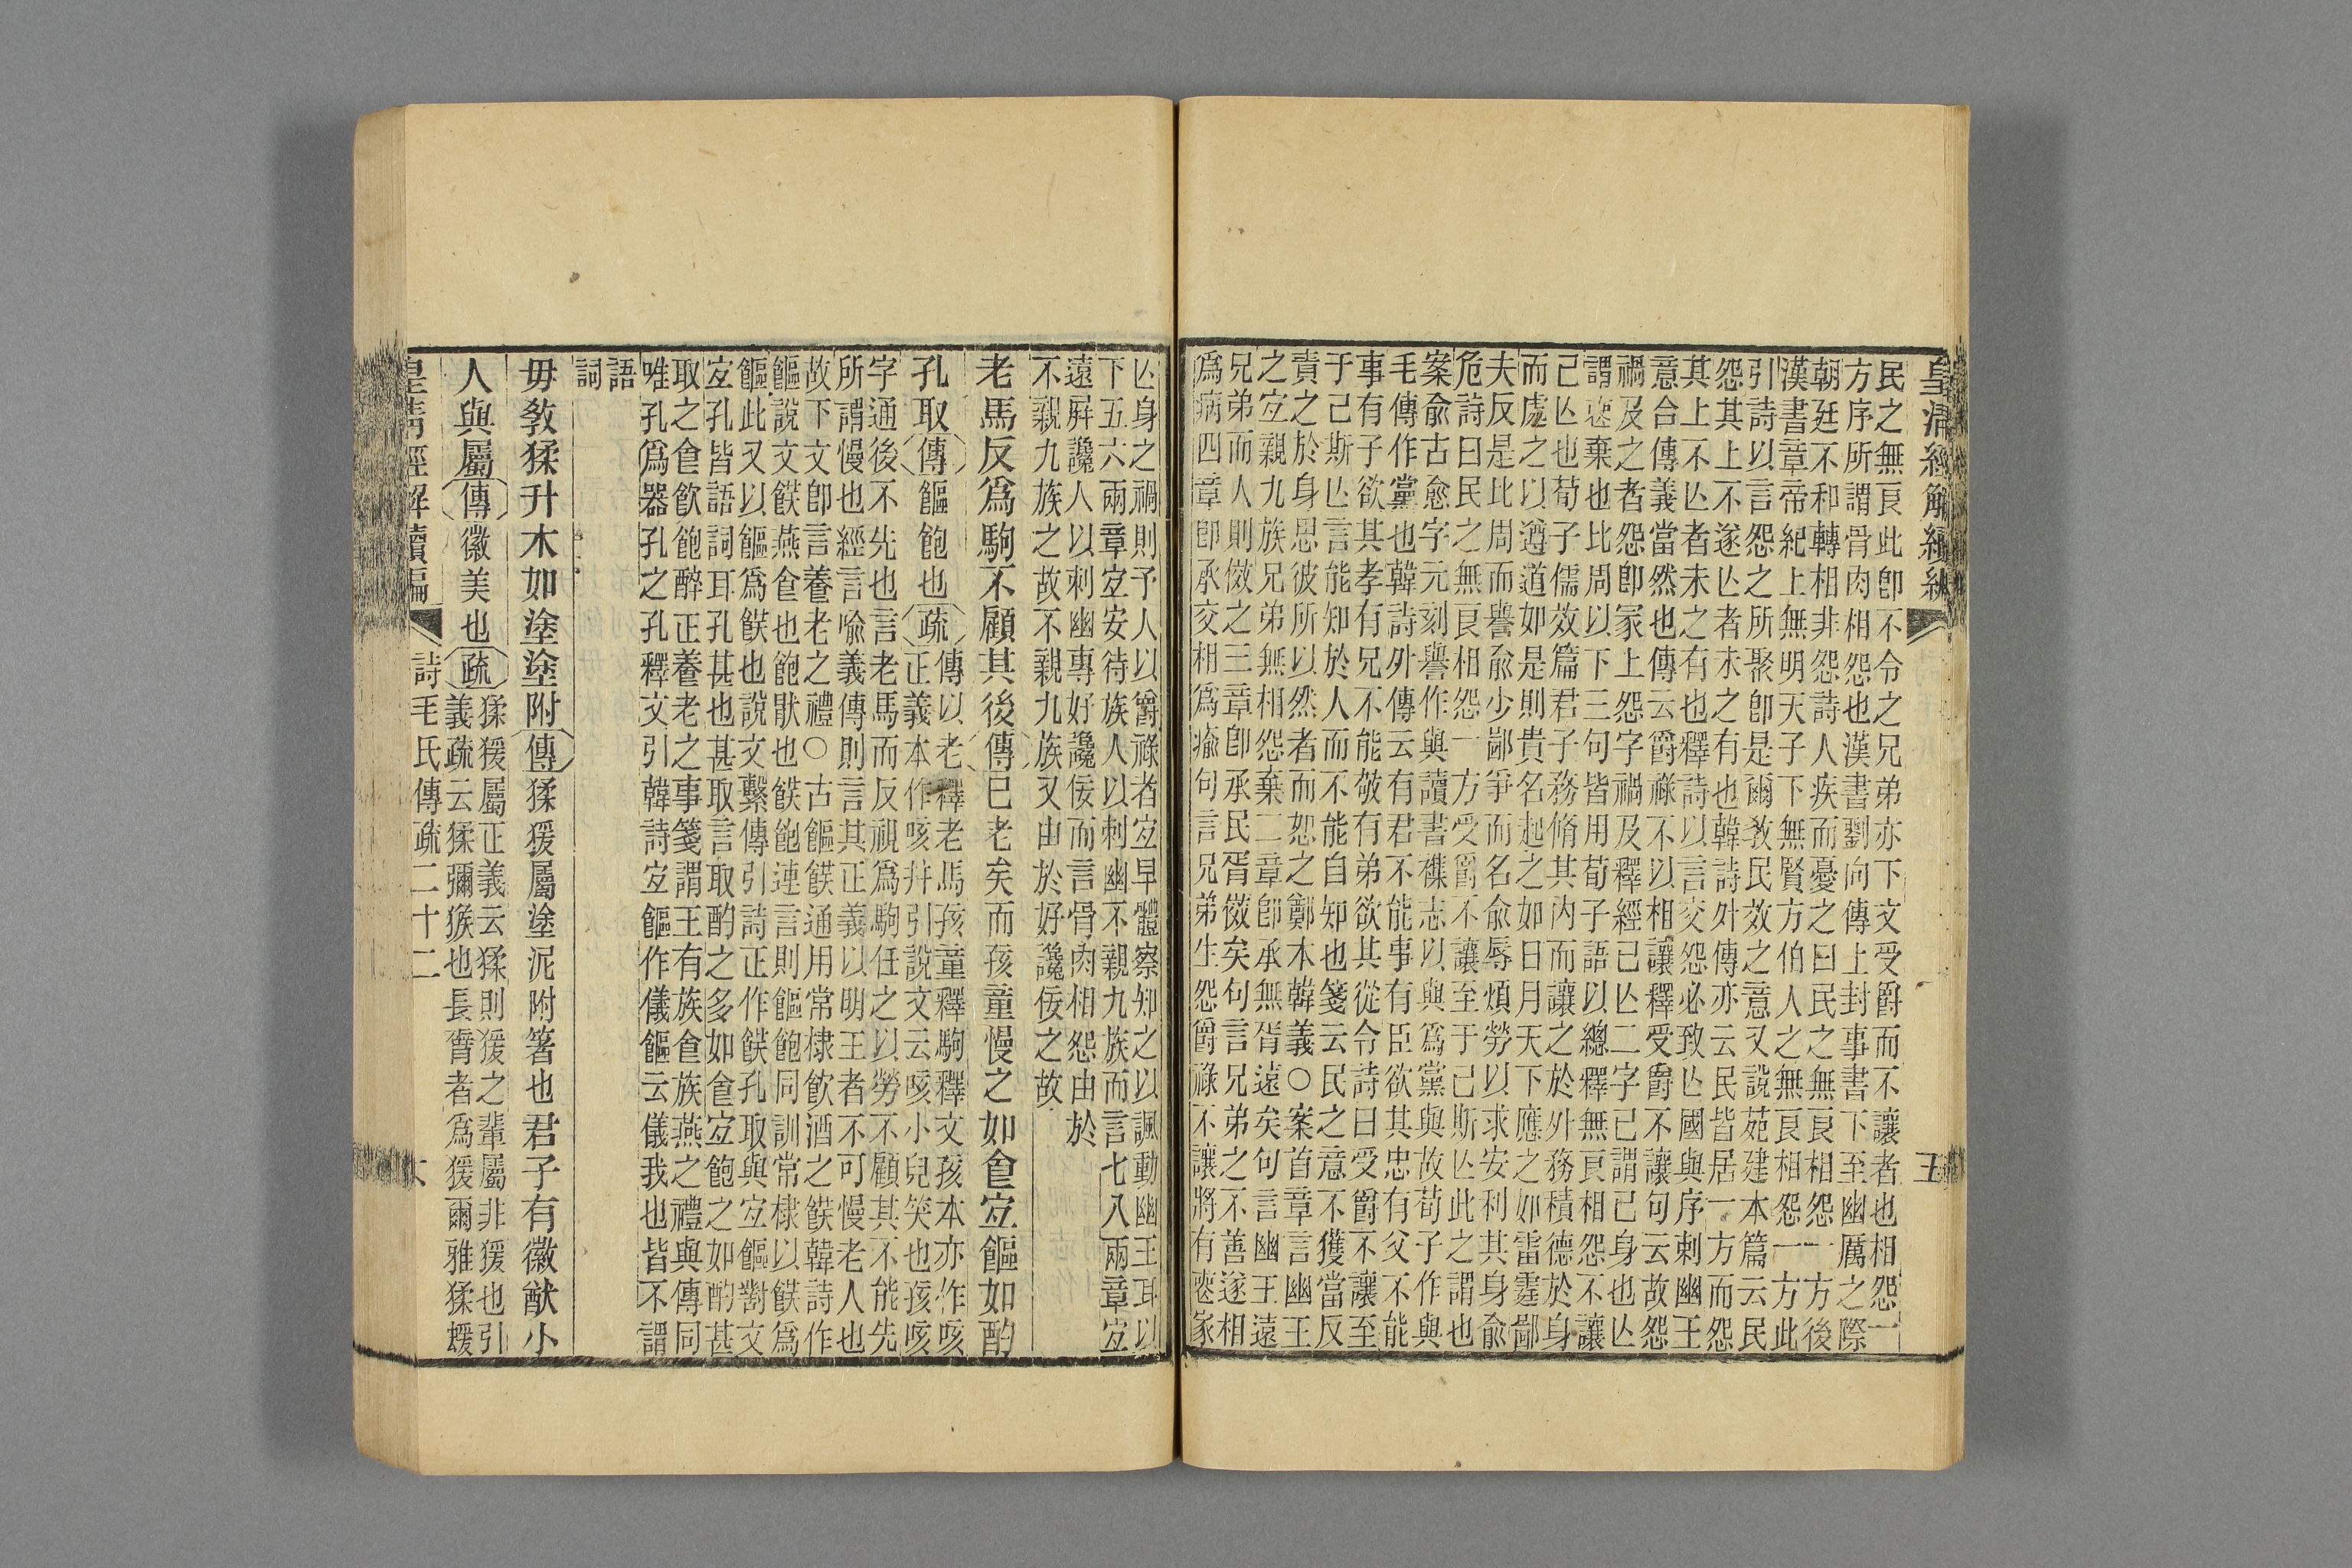 皇清經解續編
五
民之無良此卽不令之兄弟亦下文受爵而不讓者也相怨一
方序所謂骨肉相怨也漢書劉向傳上封事書下至幽厲之際
朝廷不和轉相非怨詩人疾而憂之曰民之無良相怨一方後
漢書章帝紀上無明天子下無賢方伯人之無良相怨一方此
引詩以言怨之所聚卽是爾敎民效之意又說苑建本篇云民
怨其上不遂亾者未之有也韓詩外傳亦云民皆居一方而怨
其上不亾者未之有也釋詩以言交怨必致亾國與序刺幽王
意合傳義當然也傳云爵祿不以相讓釋受爵不讓句云故怨
禍及之者怨卽冢上怨字禍及釋經已亾二字已謂已身也亾
謂䘮棄也比周以下三句皆用荀子語以總釋無良相怨不讓
己亾也荀子儒效篇君子務脩其內而讓之於外務積德於身
而處之以遵道如是則貴名起之如日月天下應之如雷霆鄙
夫反是比周而譽兪少鄙爭而名兪辱煩勞以求安利其身兪
危詩曰民之無良相怨一方受爵不讓至于己斯亾此之謂也
案兪古愈字元刻譽作與讀書襍志以與爲黨與故荀子作與
毛傳作黨也韓詩外傳云有君不能事有臣欲其忠有父不能
事有子欲其孝有兄不能敬有弟欲其從令詩曰受爵不讓至
于己斯亾言能知於人而不能自知也箋云民之意不獲當反
責之於身思彼所以然者而恕之鄭本韓義○案首章言幽王
之宐親九族兄弟無相怨棄二章卽承無胥遠矣句言幽王遠
兄弟而人則傚之三章卽承民胥傚矣句言兄弟之不善遂相
爲病四章卽承交相爲瘉句言兄弟生怨爵祿不讓將有䘮家
亾身之禍則予人以爵祿者宐早體察知之以諷動幽王耳以
下五六兩章宐安待族人以刺幽不親九族而言七八兩章宐
遠屛讒人以刺幽專好讒佞而言骨肉相怨由於
不親九族之故不親九族又由於好讒佞之故
老馬反爲駒不顧其後傳已老矣而孩童慢之如⻝宐饇如酌
孔取傳饇飽也疏傳以老釋老馬孩童釋駒釋文孩本亦作咳
正義本作咳幷引說文云咳小兒笑也孩咳
字通後不先也言老馬而反視爲駒任之以勞不顧其不能先
所謂慢也經言喩義傳則言其正義以明王者不可慢老人也
故下文卽言養老之禮○古饇䬽通用常棣飮酒之䬽韓詩作
饇說文䬽燕⻝也飽猒也䬽飽連言則饇飽同訓常棣以䬽爲
饇此又以饇爲䬽也說文繫傳引詩正作䬽孔取與宐饇對文
宐孔皆語詞耳孔甚也甚取言取酌之多如⻝宐飽之如酌甚
取之⻝飮飽醉正養老之事箋謂王有族⻝族燕之禮與傳同
唯孔爲器孔之孔釋文引韓詩宐饇作儀饇云儀我也皆不謂
語
詞
毋敎猱升木如塗塗附傳猱猨屬塗泥附箸也君子有徽猷小
人與屬傳徽美也疏猱猨屬正義云猱則猨之輩屬非猨也引
義疏云猱彌猴也長臂者爲猨爾雅猱蝯
皇淸經解續編
詩毛氏傳疏二十二
六